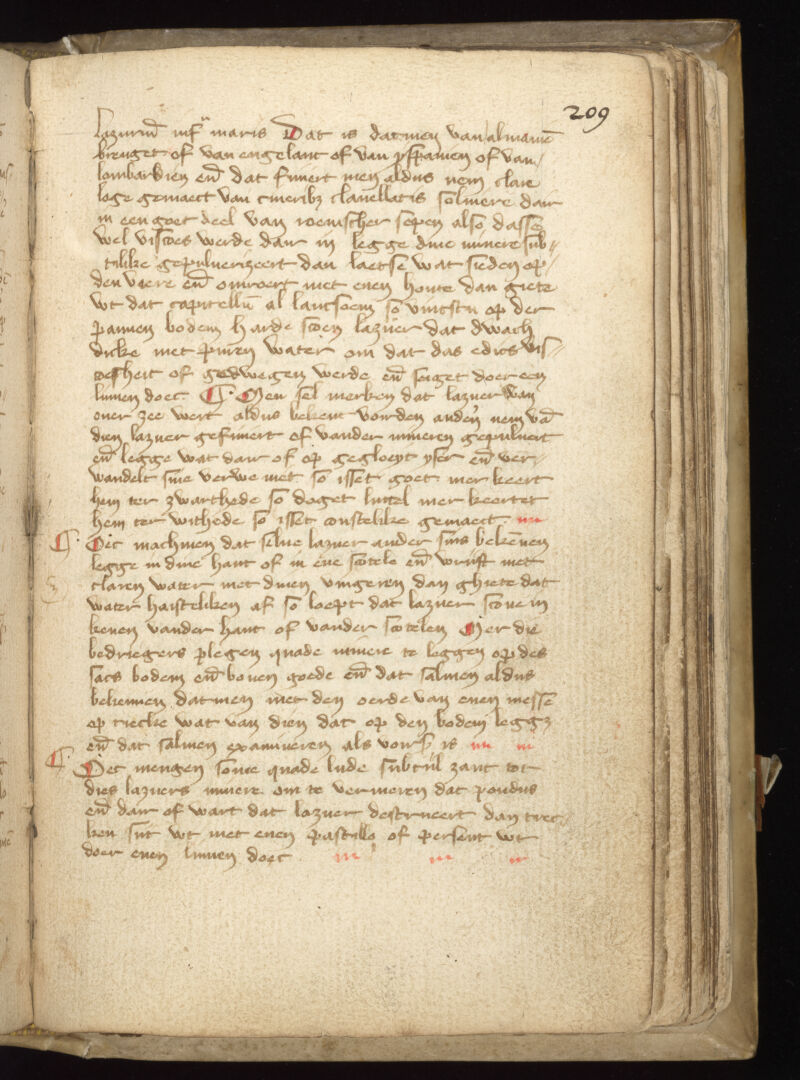 209
Lazurru inf maris Dat is datmen van almanie
brenget of van engelant of van yspanien of van
lombardien en dat fineert men aldus nem clare
loge gemaect van cineribz clauellatis solutere dair
in een goet deel van roemscher sepen also dasse
wel viscoes werde dair in legge dine minere sub
tilike gepulueriseert dan laetse wat sieden op
den viere en omroert met enen houte dan giete
wt dat capitellu al lancsoem so vintstu op der
pannen bodem harde scoen lazuer dat dwach
dicke met puren water om dat das edics vis
coesheit of gedwegen werde en siget doer een
linnen doec Men sel merken dat lazuer van
ouer zee wert aldus bekent vor den anderen nem van
dien lazuer gefiniert of vander mineren gepuluert
en legge wat dair of op gegloeyt yser en ver
wandelt sine verwe niet so isset goet mer keert
hem ter zwarthede so doget luttel mer keertet
hem ter withede so isset constelike gemaect
Oec machmen dat selue lazuer ander sins bekennen
legge in dine hant of in ene scotele en wrijft met
claren water met dinen vingeren dan ghiete dat
water haesteliken af so loept dat lazuer scone in
kenen vander hant of vander scotelen Mer die
bedriegers plegen quade minere te leggen op des
sacs bodem en bouen goede en dat salmen aldus
bekennen datmen met den oerde van enen messe
op trecke wat van dien dat op den bodem leggz
en dat salmen examineren als vors is
Oec mengen some quade lude subtijl zant tot
dies lazuers minere om te vermeren dat pondus
en dair of wart dat lazuer destrueert dan trec
ken sijt wt met enen pastillo of persent wt
doer enen linnen doec